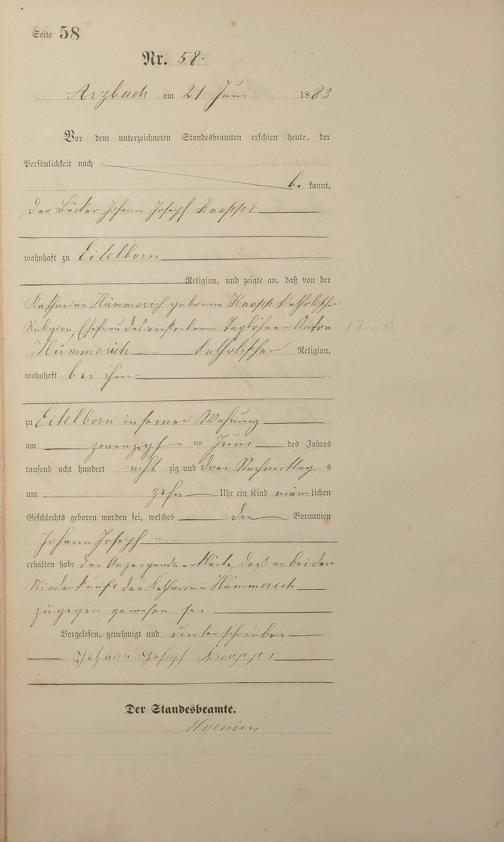 Seite 58
Nr. 58.
Arzbach am 21 Juni 1883
Vor dem unterzeichneten Standesbeamten erschien heute, der
Persönlichkeit nach
be kannt,
der Bäcker Johann Joseph
wohnhaft zu Eitelborn
Religion, und zeigte an, daß von der
Katharina Hümmerich geborne Knopp katholischer
Religion, Ehefrau des verstorbenen Taglöhner Anton
Hümmerich katholischer Religion,
wohnhaft bei ihm
zu Eitelborn in seiner Wohnung
am zwanzigst ten Juni des Jahres
tausend acht hundert acht zig und drei Nachmittag s
um zehn Uhr ein Kind männlichen
Geschlechts geboren worden sei, welches die Vornamen
Johann Joseph
erhalten habe der Anzeigende erklärte, daß er bei der
Niederkunft der Katharina Hümmerich
zugegen gewesen sei
Vorgelesen, genehmigt und unterschrieben
Johann Joseph
Der Standesbeamte.